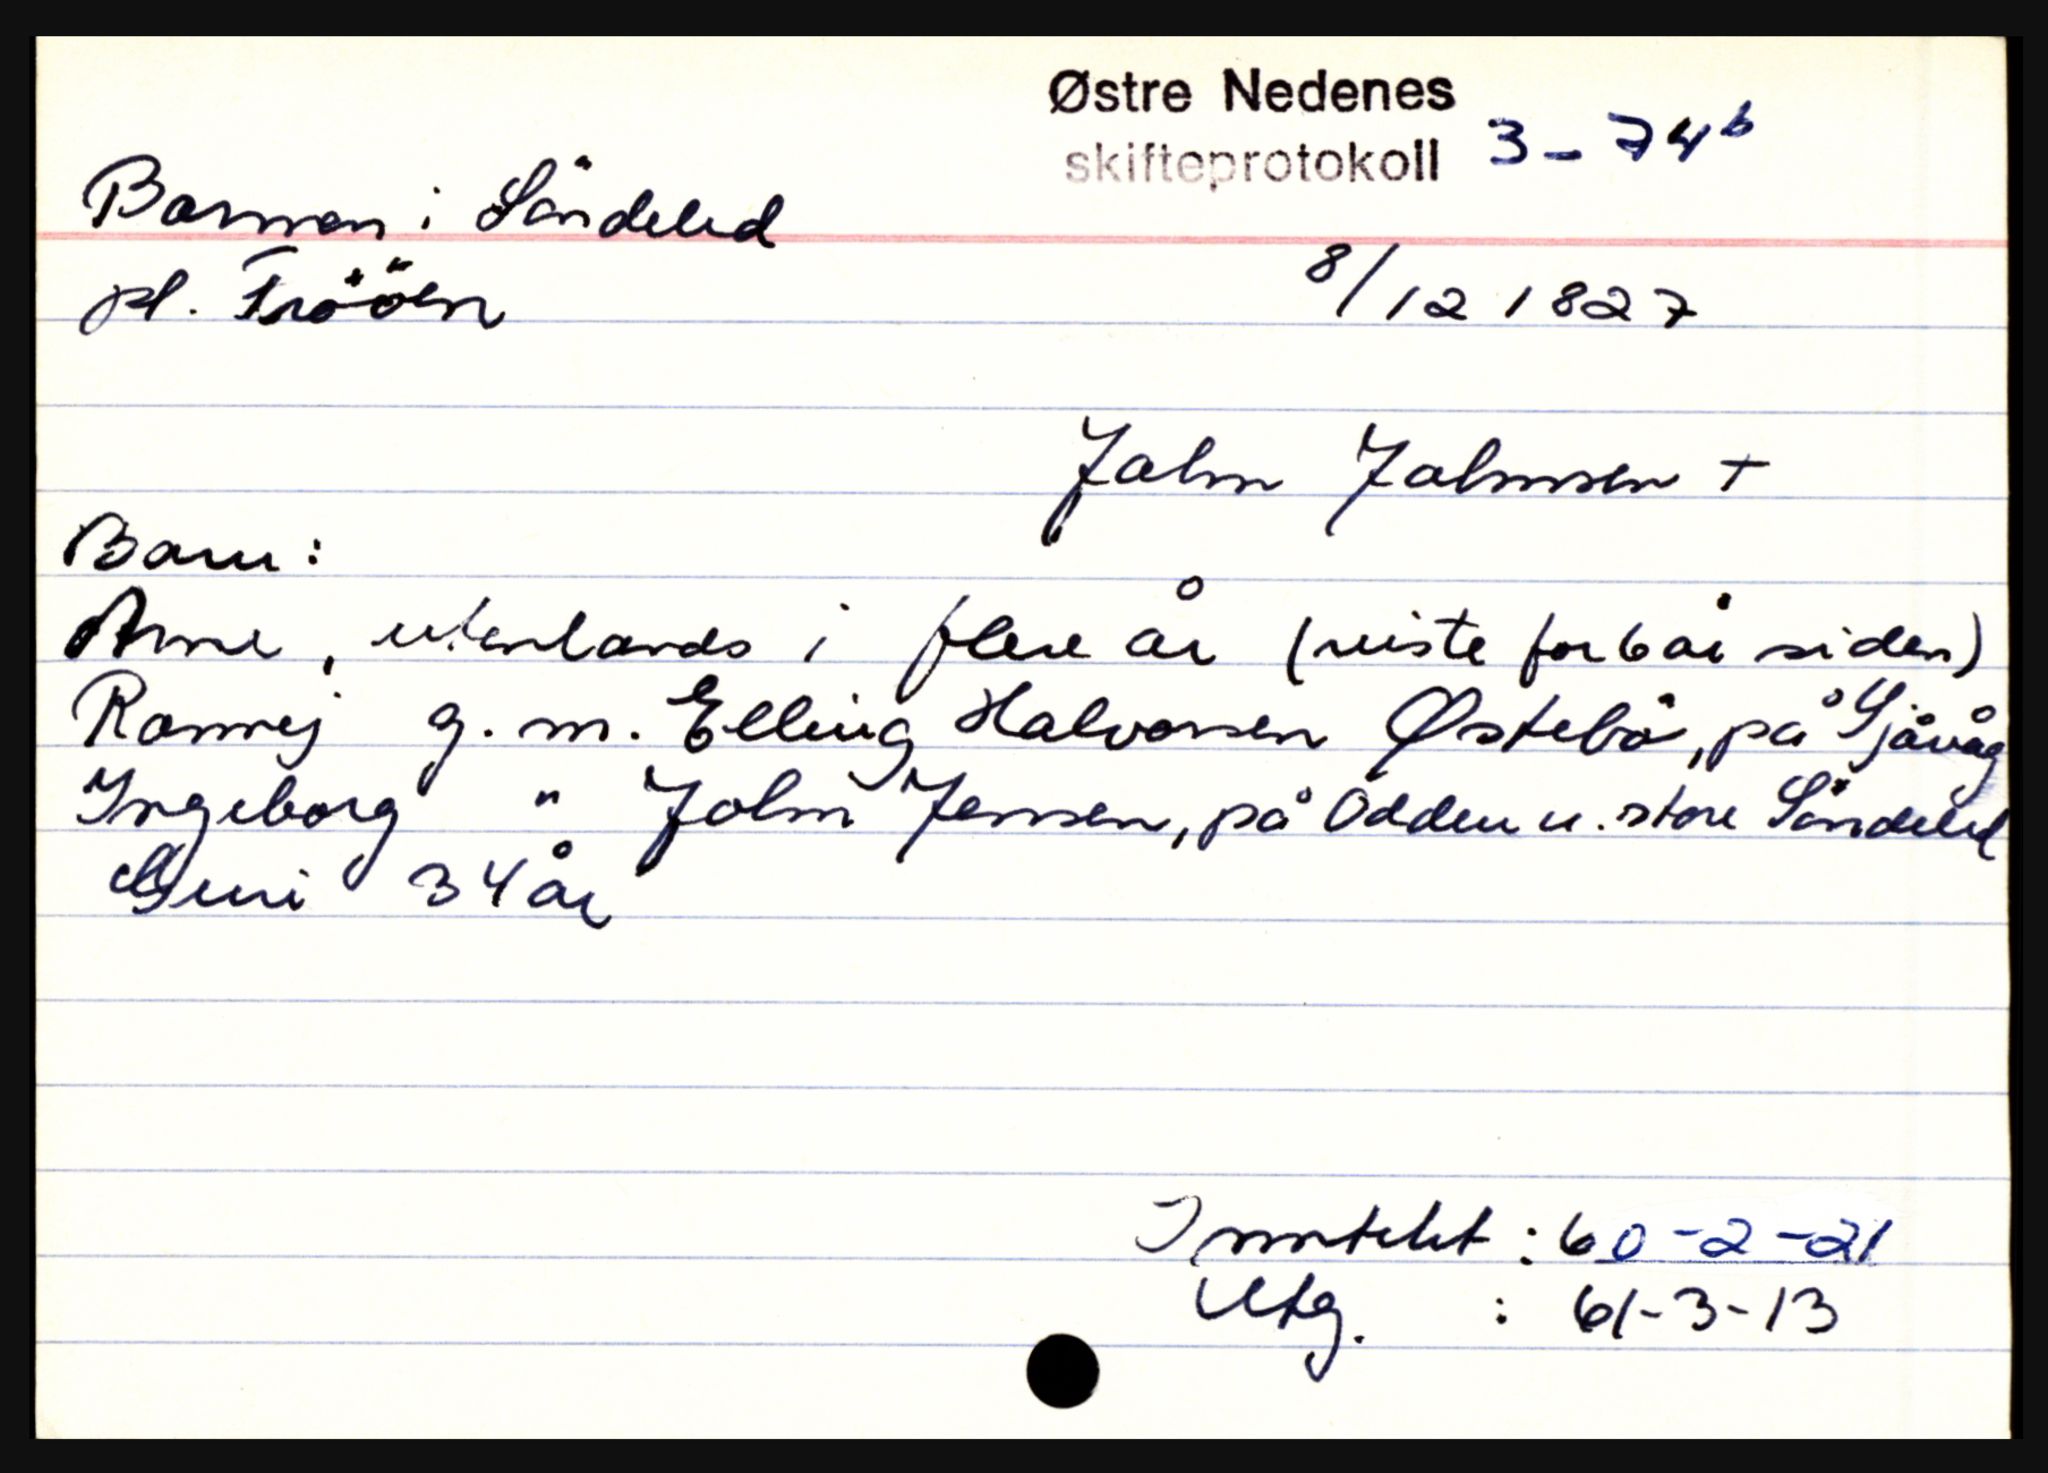 Østre Nedenes
skifteprotokoll 3-74b
Barmen i Söndeled
pl. Frööen
8/12 1827
John Johnsen +
Barn:
Arne, utenlands i flere år (reiste for 6 år siden)
Rannej g. m. Elling Halvorsen Østebö, på Sjåvåg
Ingeborg " John Jensen, på Odden u. store Söndeled
Guri 34 år
Inntekt : 60-2-21
Utg. : 61-3-13